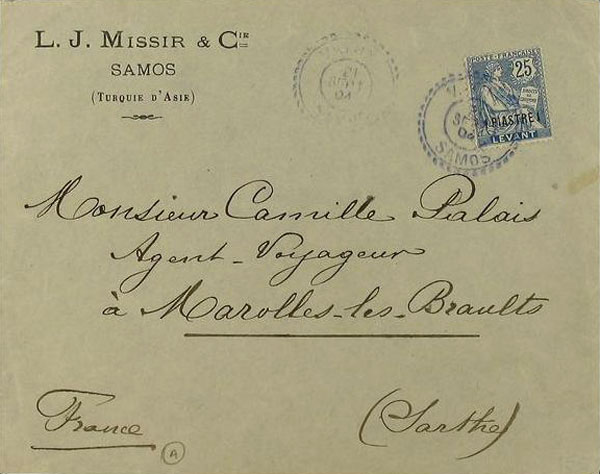 L. J. MISSIR & CIE
SAMOS
(TURQUIE D'ASIE)
POSTE FRANÇAISE
25
1 PIASTRE 1
LEVANT
SAMOS
Monsieur Camille Palais
Agent-Voyageur
à Marolles-les-Braults
France
(Sarthe)
A